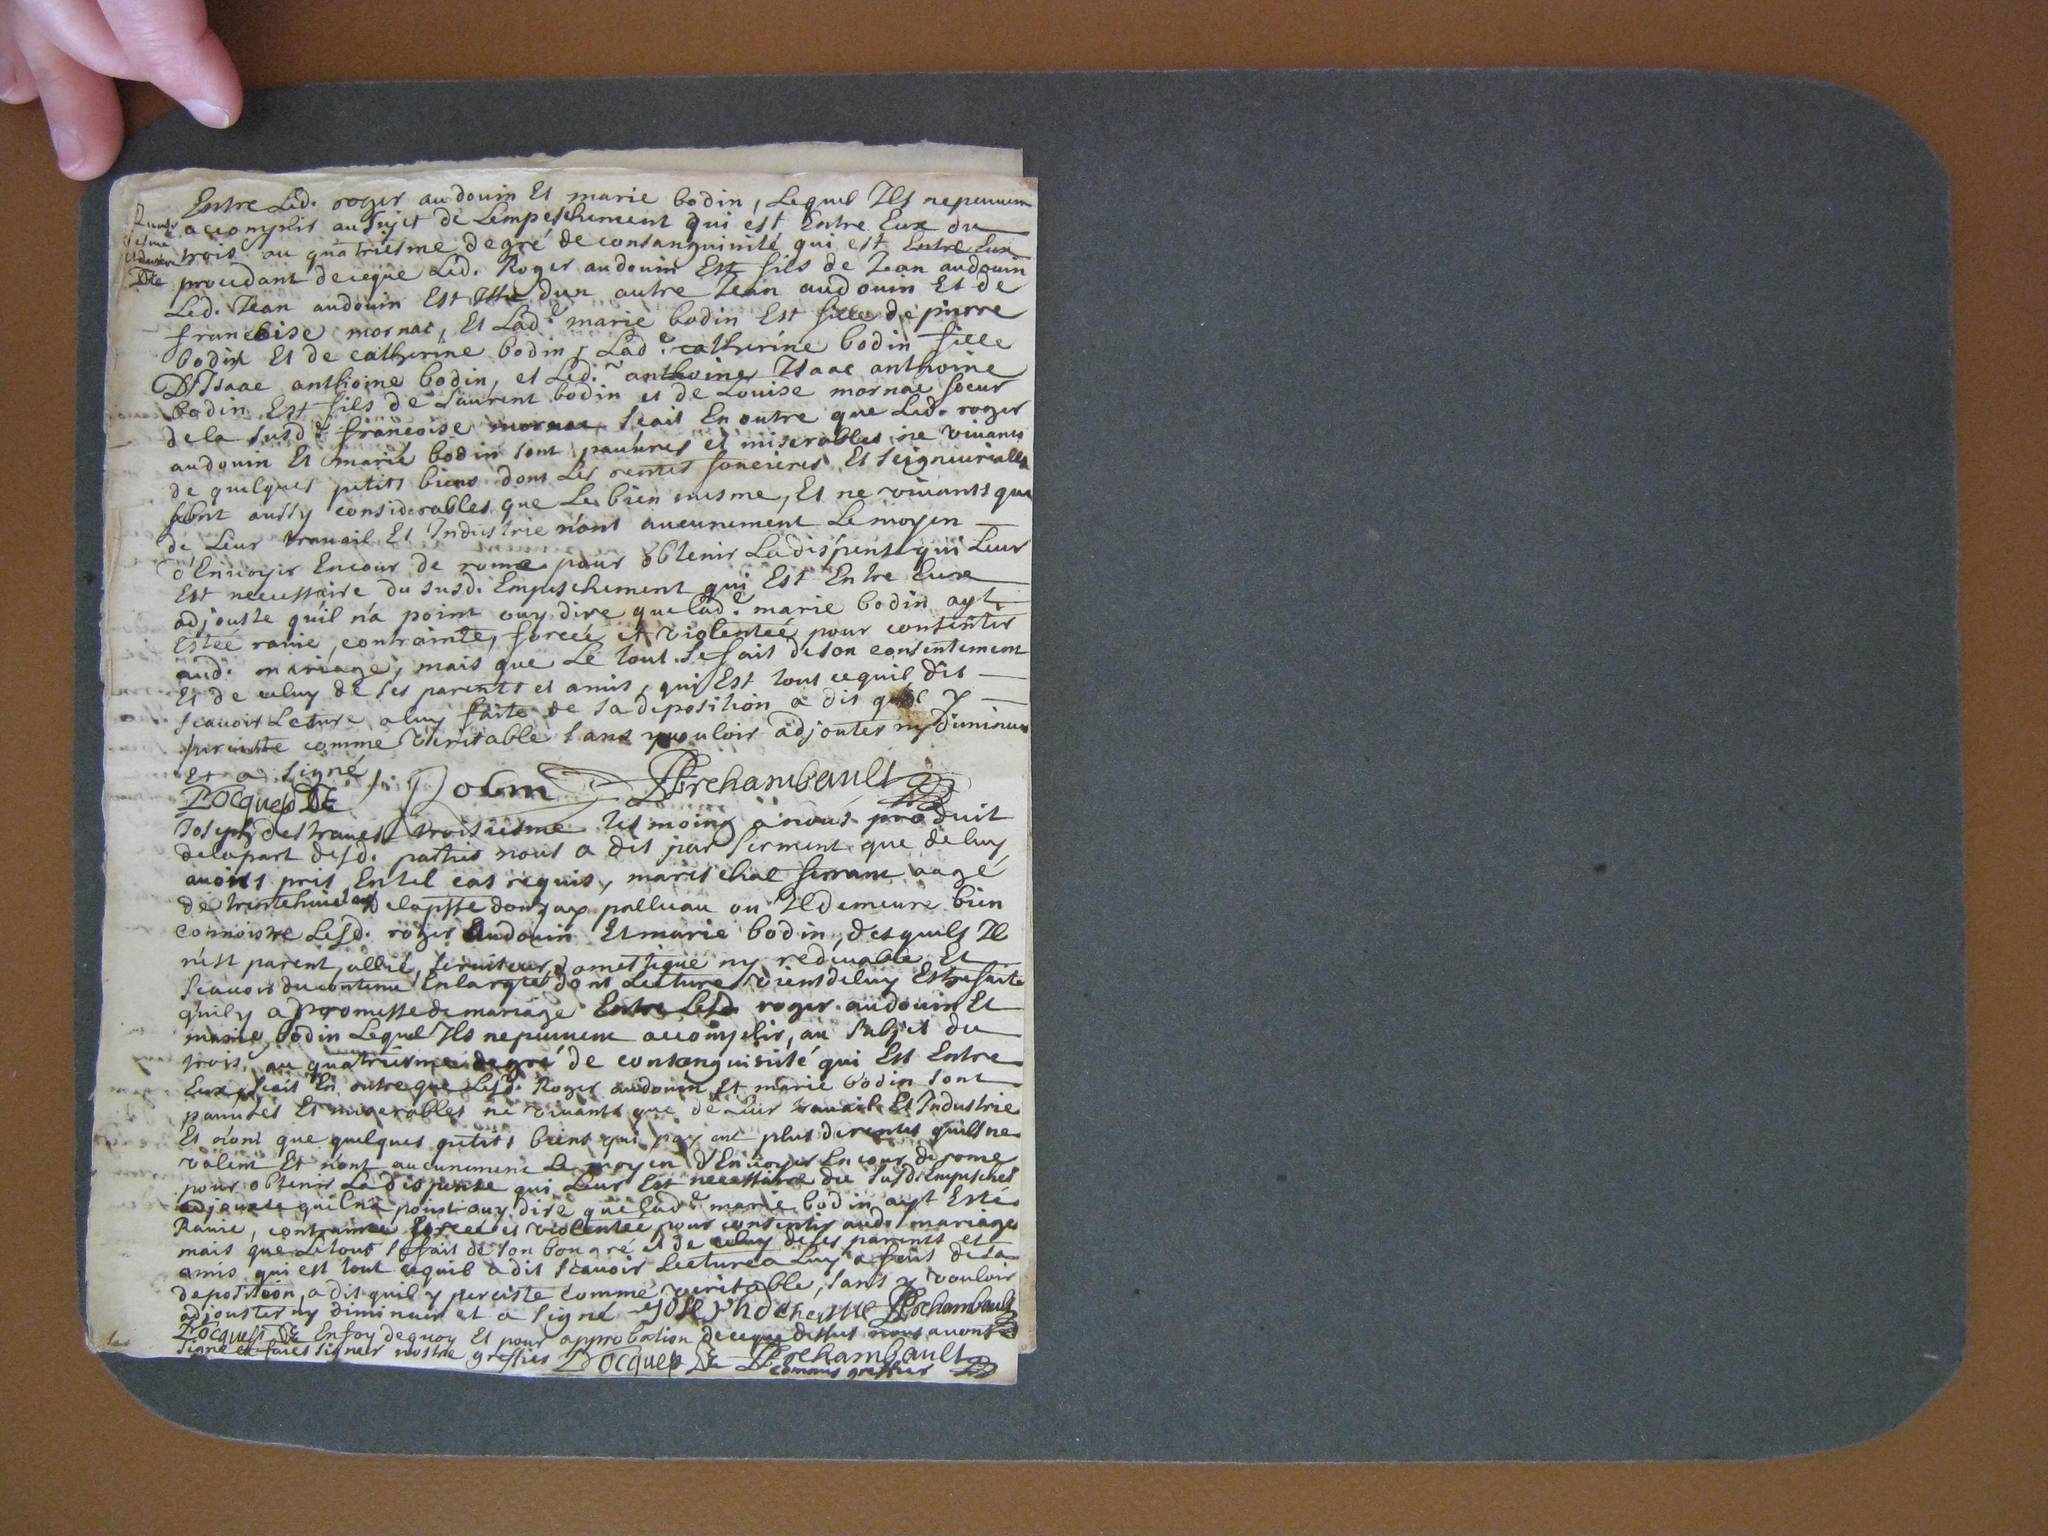 Entre Led. roger audouin Et marie bodin, Lequel Ils nepeuuent
accomplir au Sujet de Lempeschement qui est Entre Eux du
trois au quatriesme degré de consanguinité qui est Entre Eux
procedant deceque Led. Roger audouin Est fils de Jean audouin
Led. Jean audouin Est dun autre Jean audouin Et de
francoise mornac, Et Lad.e marie bodin Est fille de pierre
bodin Et de catherine bodin, Lad.e catherine bodin fille
DIsaac anthoine bodin, et Led. anthoine Isaac anthoine
bodin Est fils de Laurent bodin et de Louise mornac soeur
dela susd.e francoise mornac, Scait En outre que Led. roger
audouin Et marie bodin sont pauures et miserables ne viuants
de quelques petits biens dont Les rentes foncieres Et Seigneurialles
sont aussy considerables que Le bien mesme, Et ne viuants que
de Leur trauail Et Industrie n'ont aucunement Le moyen
d'Enuoyer Encour de rome pour obtenir La dispense qui Leur
Est necessaire du susd. Empeschement qui Est Entre Eux
adjouste quil n'a point ouy dire que Lad.e marie bodin ayt
Estée rauie, contrainte, forcée et violentée pour consentir
aud. mariage, mais que Le tout Se fait de son consentement
Et de celuy de ses parents et amis, qui Est tout cequil dit
scauoir Lecture a luy faite de sa deposition a dit y
perciste comme veritable sans y vouloir adjouter ny diminuer
Et a Signé
Rocquet Archambault
Joseph troisiesme tesmoing a nous produit
delapart desd. parties nous a dit par serment que de luy
auons pris Entel cas requis, mareschal ferrant aagé
de trentehuict ans delapsse palluau ou Il demeure bien
connoistre Lesd. roger audouin Et marie bodin, desquels Il
n'est parent, allié, seruiteur, domestique ny redeuable Et
scauoir du contenu Enlarqte dont Lecture vient deluy Estre faite
quil y a promesse de mariage Entre Lesd. roger audouin Et
marie bodin Lequel Ils nepeuuent accomplir, au Subjet du
trois au quatriesme degré de consanguinité qui Est Entre
Eux, scait En outre que Lesd. Roger audouin Et marie bodin sont
pauures Et miserables ne viuants que de Leur trauail Et Industrie
Et n'ont que quelques petits biens qui payent plus de rentes quils ne
valent Et n'ont aucunement Le moyen d'Enuoyer En cour de rome
pour obtenir La dispense qui Leur Est necessaire du Susd. Empeschet
adjouste quil n'a point ouy dire que Lad.e marie bodin ayt Esté
Rauie, contrainte forcée et violentée pour consentir aud. mariage
mais que Le tout Se fait de son bon gré et de celuy de ses parents et
amis qui est tout cequil a dit scauoir Lecture a Luy a fait de sa
deposition, a dit quil y perciste comme veritable, sans y vouloir
adjouster ny diminuer et a Signé Archambault
Rocquet En foy dequoy Et pour approbation de ceque dessus nous auons
Signé et faict signer nostre greffier Rocquet Archambault
commis greffier